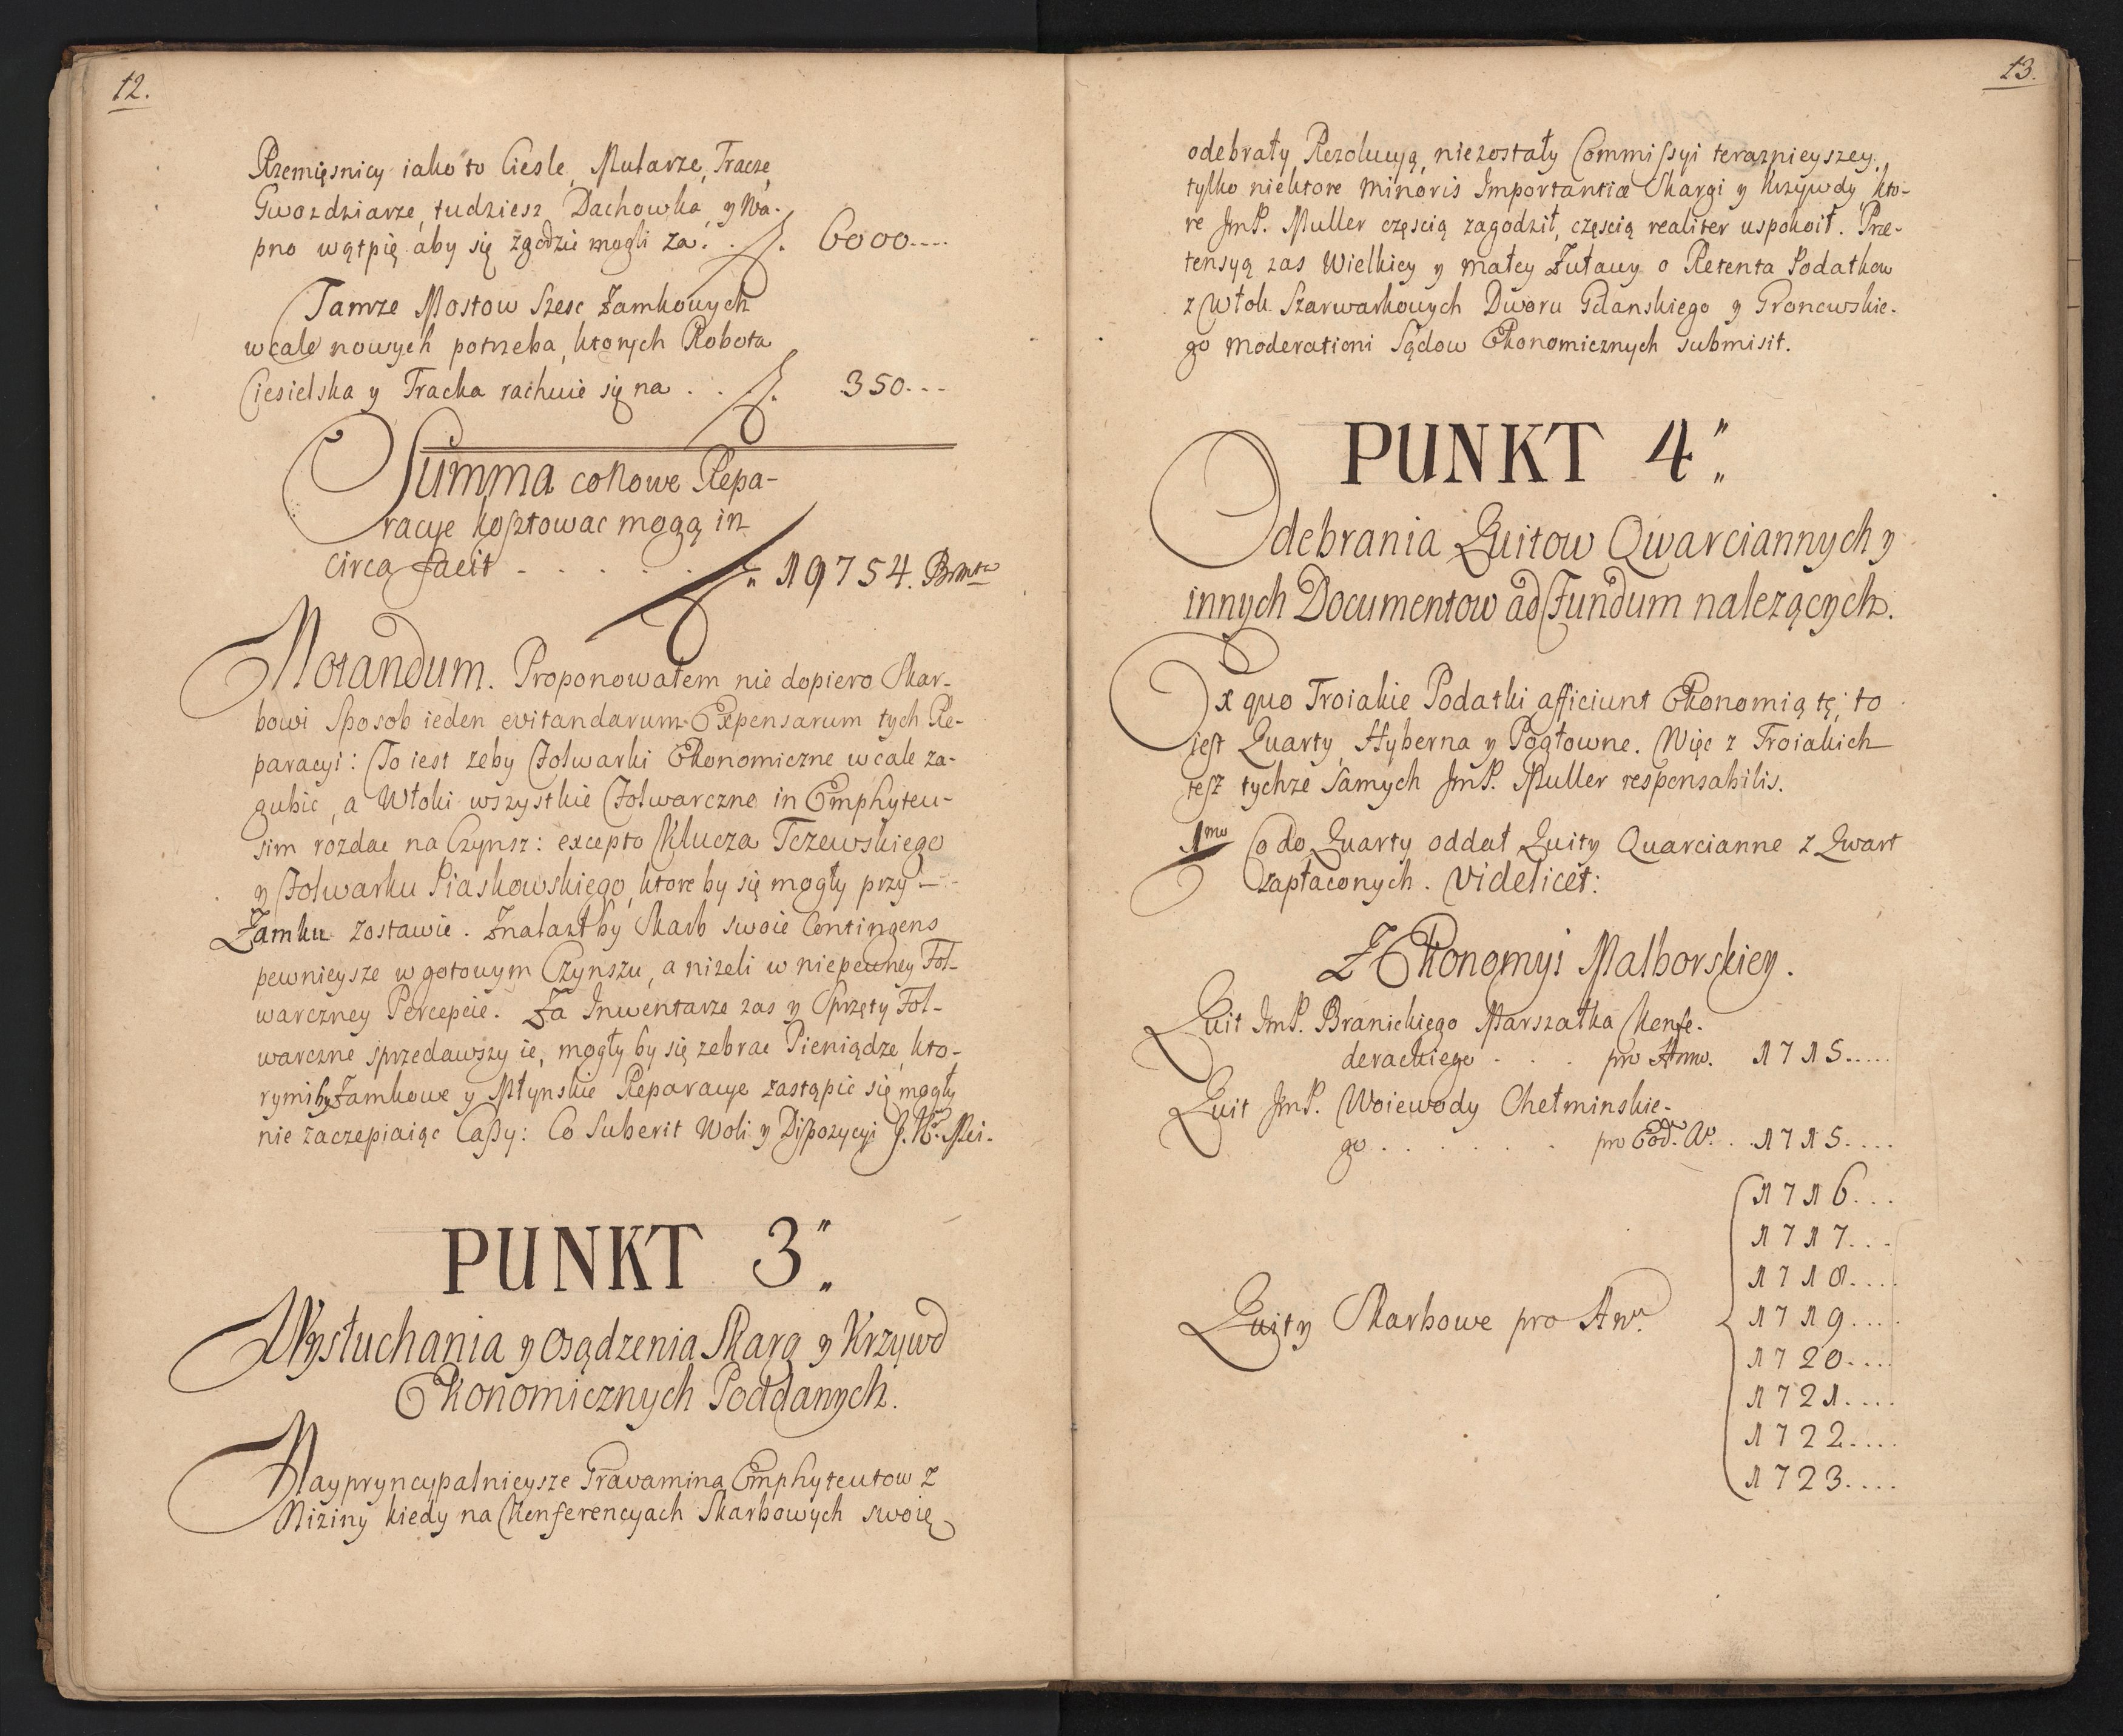 12.
Rzemięsnicy iako to Ciesle, Mularze, Tracze,
Gwozdziarze, tudziesz Dachowka, y Wa-
pno wątpię aby się zgodzić mogli za. . f. 6000....
Tamze Mostow Szesc Zamkowych
wcale nowych potrzeba, ktorych Robota
Ciesielska y Tracka rachuie się na . . . f. 350...
Summa cokowe Repa-
racye kosztowac mogą in
circa facit - . . . . f. 19754. Prutt
Notandum. Proponowałem nie dopiero Skar-
bowi Sposob ieden evitandarum Expensarum tych Re-
paracyi: To iest zeby Folwarki Ekonomiczne wcale za-
gubić, a Włoki wszystkie Folwarczne in Emphyteu-
sim rozdac na Czynsz: excepto Klucza Tczewskiego
y Folwarku Piaskowskiego, ktore by się mogły przy -
Zamku zostawic. Znalazłby Skarb swoie Contingens
pewnieysze w gotowym Czynszu, a nizeli w niepewney Fol-
warczney Percepcie. Za Inwentarze zas y Sprzęty Fol-
warczne sprzedawszy ie, mogły by się zebrac Pieniądze, kto-
rymiby Zamkowe y Młynskie Reparacye zastąpic się mogły
nie zaczepiaiąc Cassy: Co Suberit Woli y Dispozycyi J. K. Mci.
PUNKT 3.
Wysłuchania y osądzenia Skarg y Krzywd
Ekonomicznych Poddanych.
Naypryncypalnieysze Gravamina Emphyteutow z
Niziny kiedy na Konferencyach Skarbowych swoię
13.
odebrały Rezolucyą, niezostały Commissyi terazniejszey,
tylko niektore minoris Importantiæ Skargi y Krzywdy, kto-
re JmP. Muller częscią zagodził, częscią realiter uspokoił. Prze-
tensyą zas Wielkiey y małey Zuławy o Retenta Podatkow
z Włok Szarwarkowych Dworu Gdanskiego y Gronowskie-
go moderationi Sądow Ekonomicznych submisit.
PUNKT 4.
Odebrania Quitow Qwarciannych y
innych Documentow ad Fundum nalezących.
Ex quo Troiakie Podatki afficiunt Ekonomią tę, to
jest Quarty, Hyberna y Pogłowne. Więc z Troiakich
tesz tychze samych JmP. Muller responsabilis.
1mo Co do Quarty oddał Quity Quarcianne z Qwart
zapłaconych. Videlicet:
Z Ekonomyi Malborskiey.
Quit JmP. Branickiego Marszałka Konfe-
derackiego - . . . pro Anno. 1715.....
Quit JmP. Woiewody Chełminskie-
go . . . . . . . pro Eod. Ao. . .1715....
1716...
1717...
1718....
1719....
Quity Skarbowe pro Ano.
1720....
1721....
1722....
1723....